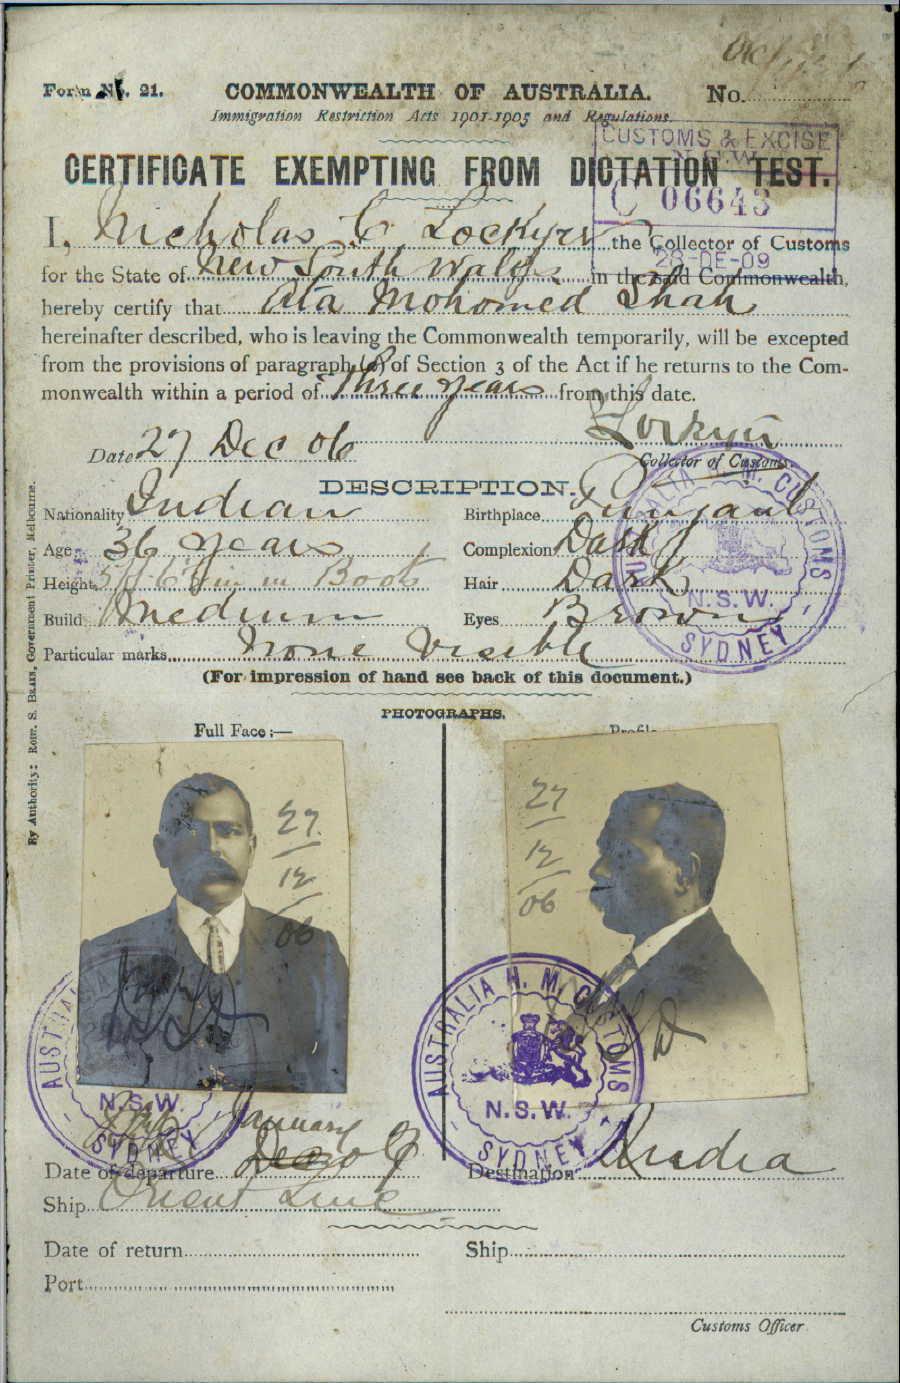 Form No. 21. COMMONWEALTH OF AUSTRALIA. No.
Immigration Restriction Acts 1901-1905 and Regulations.
CUSTOMS & EXCISE
N.S.W.
CERTIFICATE EXEMPTING FROM DICTATION TEST.
C 06643
I, Nicholas C Lockyer the Collector of Customs
28-DE-09
for the State of New South Wales in the said Commonwealth,
hereby certify that Ata Mohomed Shah
hereinafter described, who is leaving the Commonwealth temporarily, will be excepted
from the provisions of paragraph (a) of Section 3 of the Act if he returns to the Com-
monwealth within a period of Three years from this date.
Lockyer
Date 27 Dec 06 Collector of Customs.
DESCRIPTION.
Nationality Indian Birthplace Punjaub
Age 36 years Complexion Dark
Height 5 ft 6 in in Boots Hair Dark
Build Medium Eyes Brown
Particular marks None Visible
AUSTRALIA H. M. CUSTOMS
N.S.W.
SYDNEY
(For impression of hand see back of this document.)
PHOTOGRAPHS.
Full Face:— Profile
27 27
12 12
06 06
AUSTRALIA AUSTRALIA H. M. CUSTOMS
N.S.W. N.S.W.
SYDNEY SYDNEY
January
Date of departure Dec 06 Destination India
Ship Orient Line
Date of return Ship
Port
Customs Officer
By Authority: ROBT. S. BRAIN, Government Printer, Melbourne.